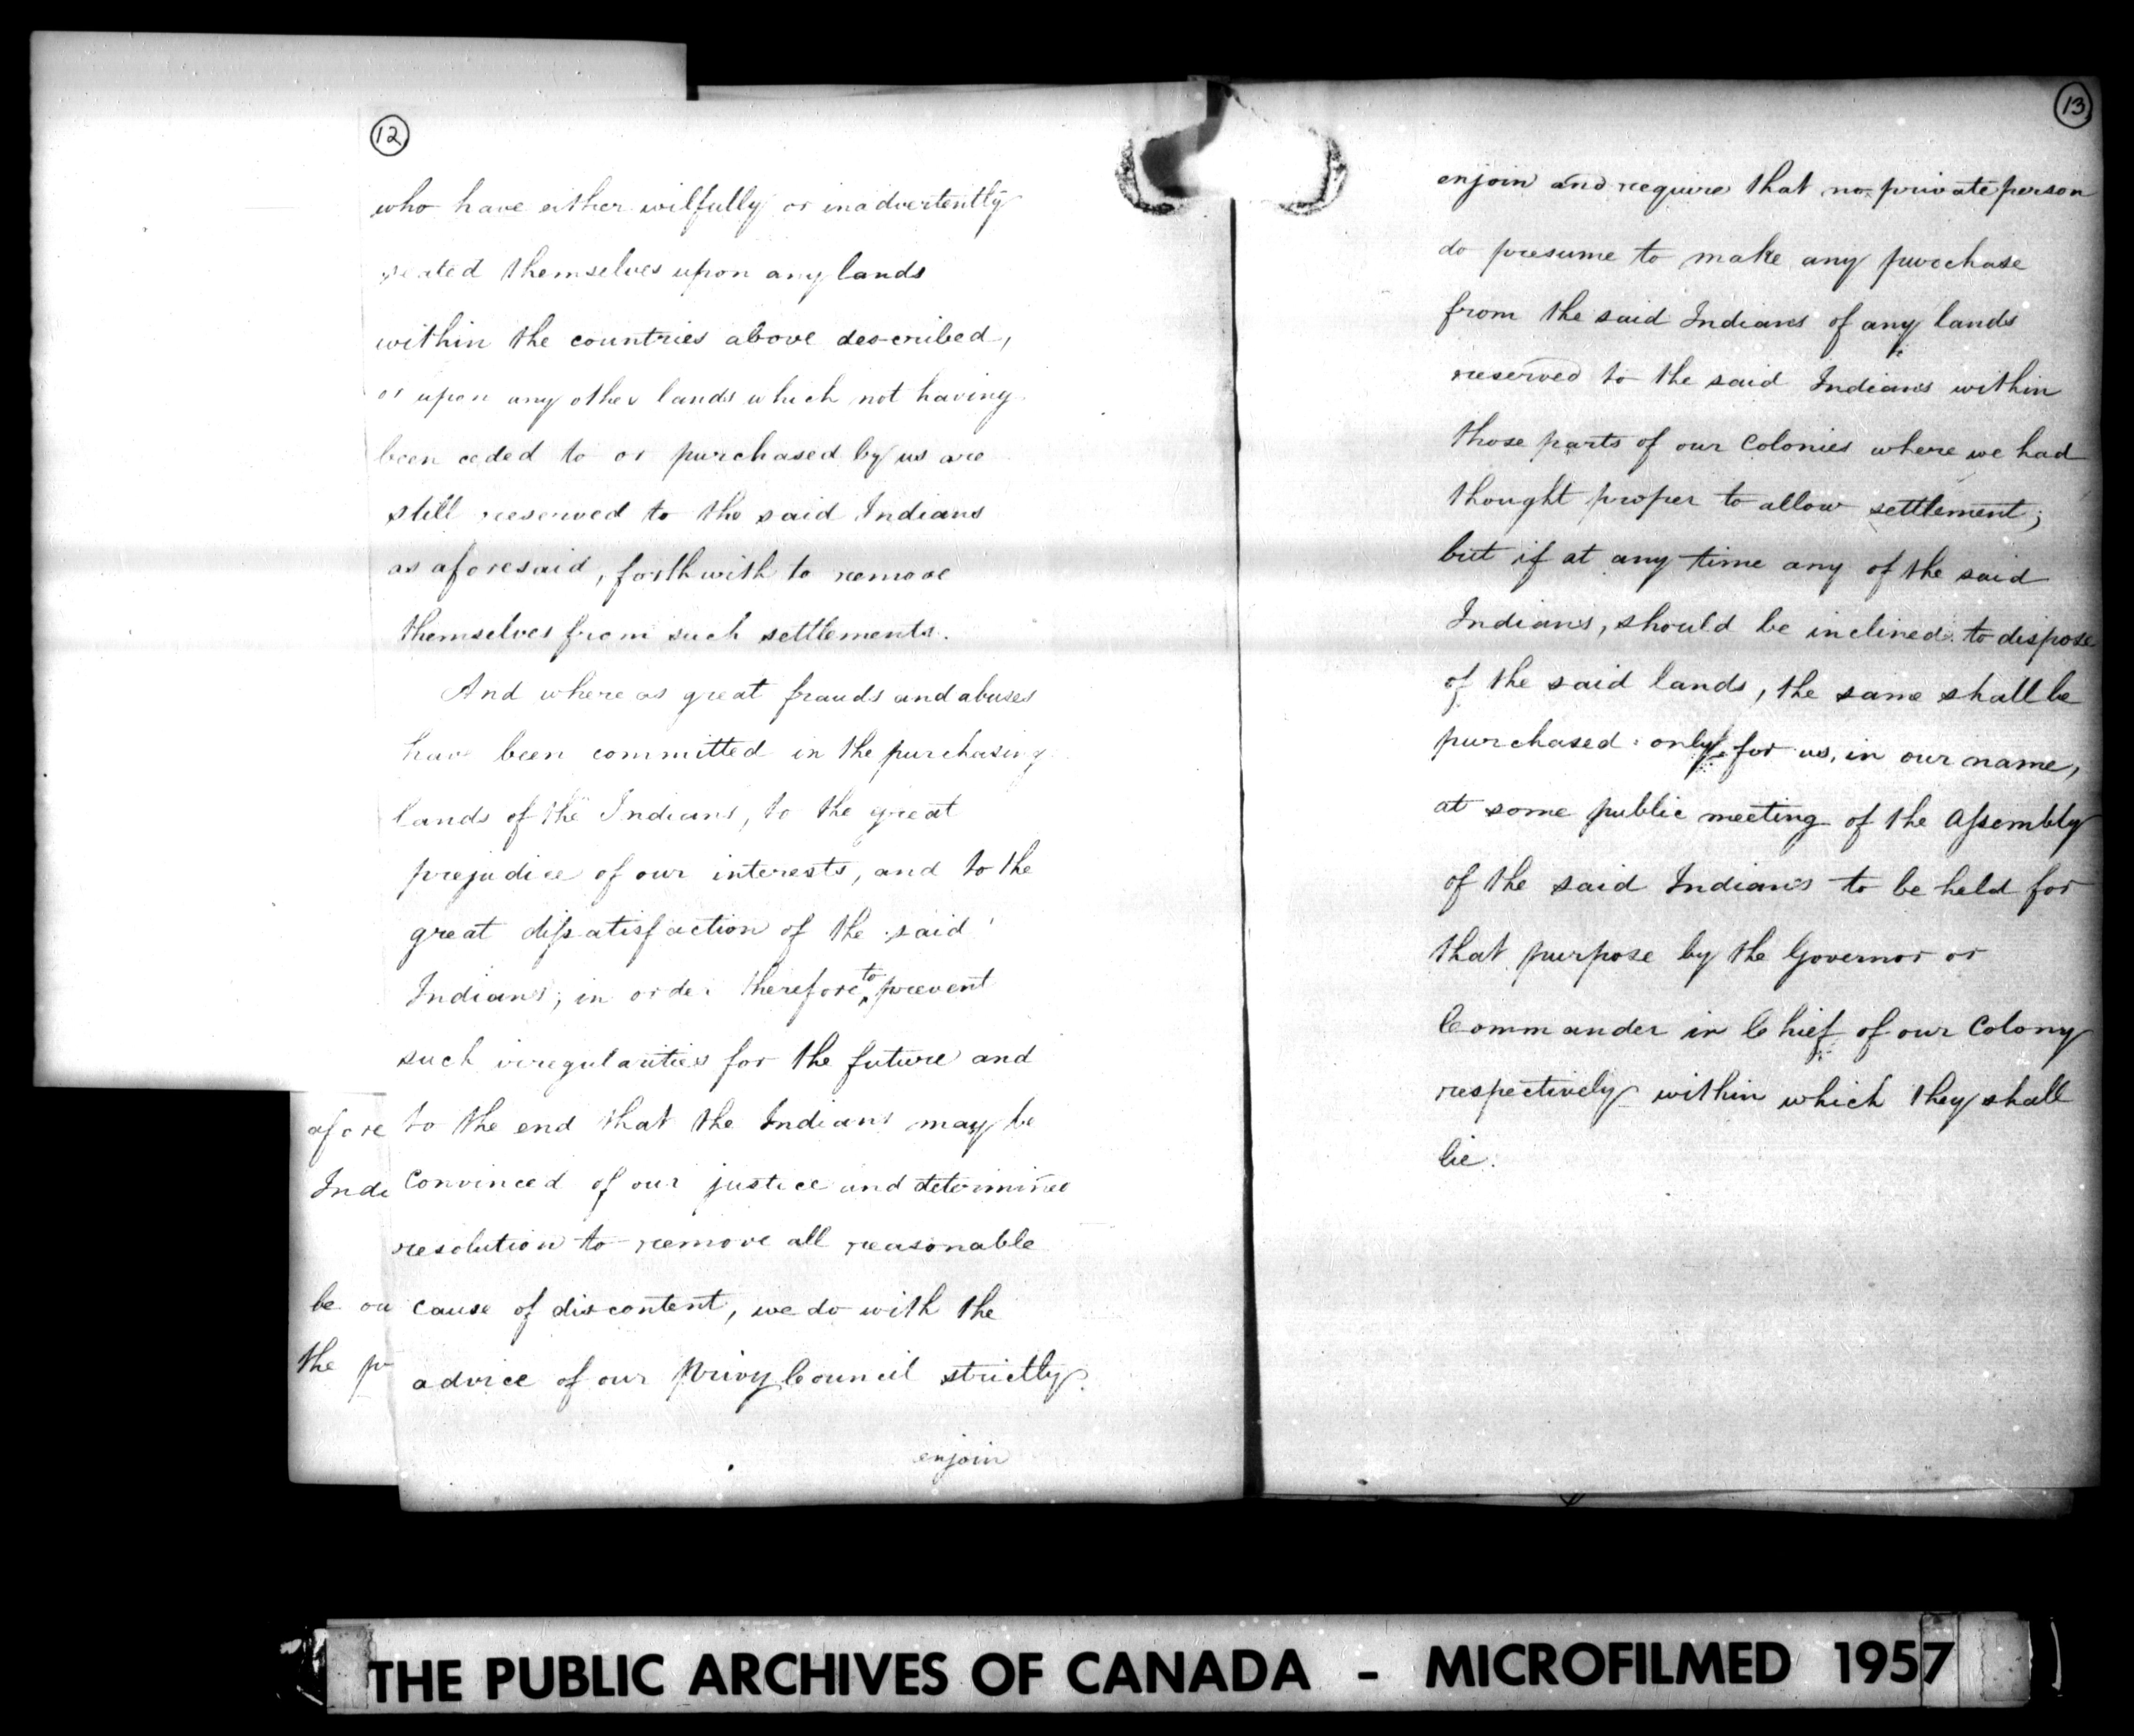 12
who have either wilfully or inadvertently
seated themselves upon any lands
within the countries above described,
or upon any other lands which not having
been ceded to or purchased by us are
still reserved to the said Indians
as aforesaid, forthwith to remove
themselves from such settlements.
And where as great frauds and abuses
have been committed in the purchasing
lands of the Indians, to the great
prejudice of our interests, and to the
great dissatisfaction of the said
Indians; in order therefore to prevent
such irregularities for the future and
to the end that the Indians may be
convinced of our justice and determined
resolution to remove all reasonable
cause of discontent, we do with the
advice of our Privy Council strictly
enjoin
afore
Indi
be ou
the pr
13
enjoin and require that no private person
do presume to make any purchase
from the said Indians of any lands
reserved to the said Indians within
those parts of our Colonies where we had
thought proper to allow settlement;
but if at any time any of the said
Indians, should be inclined to dispose
of the said lands, the same shall be
purchased only for us, in our name,
at some public meeting of the Assembly
of the said Indians to be held for
that purpose by the Governor or
Commander in Chief of our Colony
respectively within which they shall
lie.
THE PUBLIC ARCHIVES OF CANADA - MICROFILMED 1957